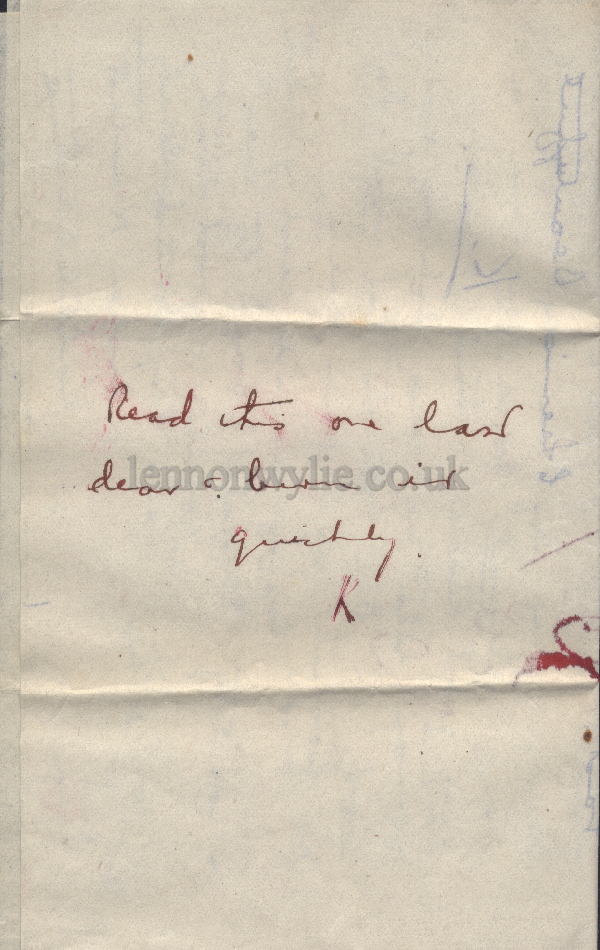 Read this one last
dear & burn it
quickly.
K
lennonwylie.co.uk